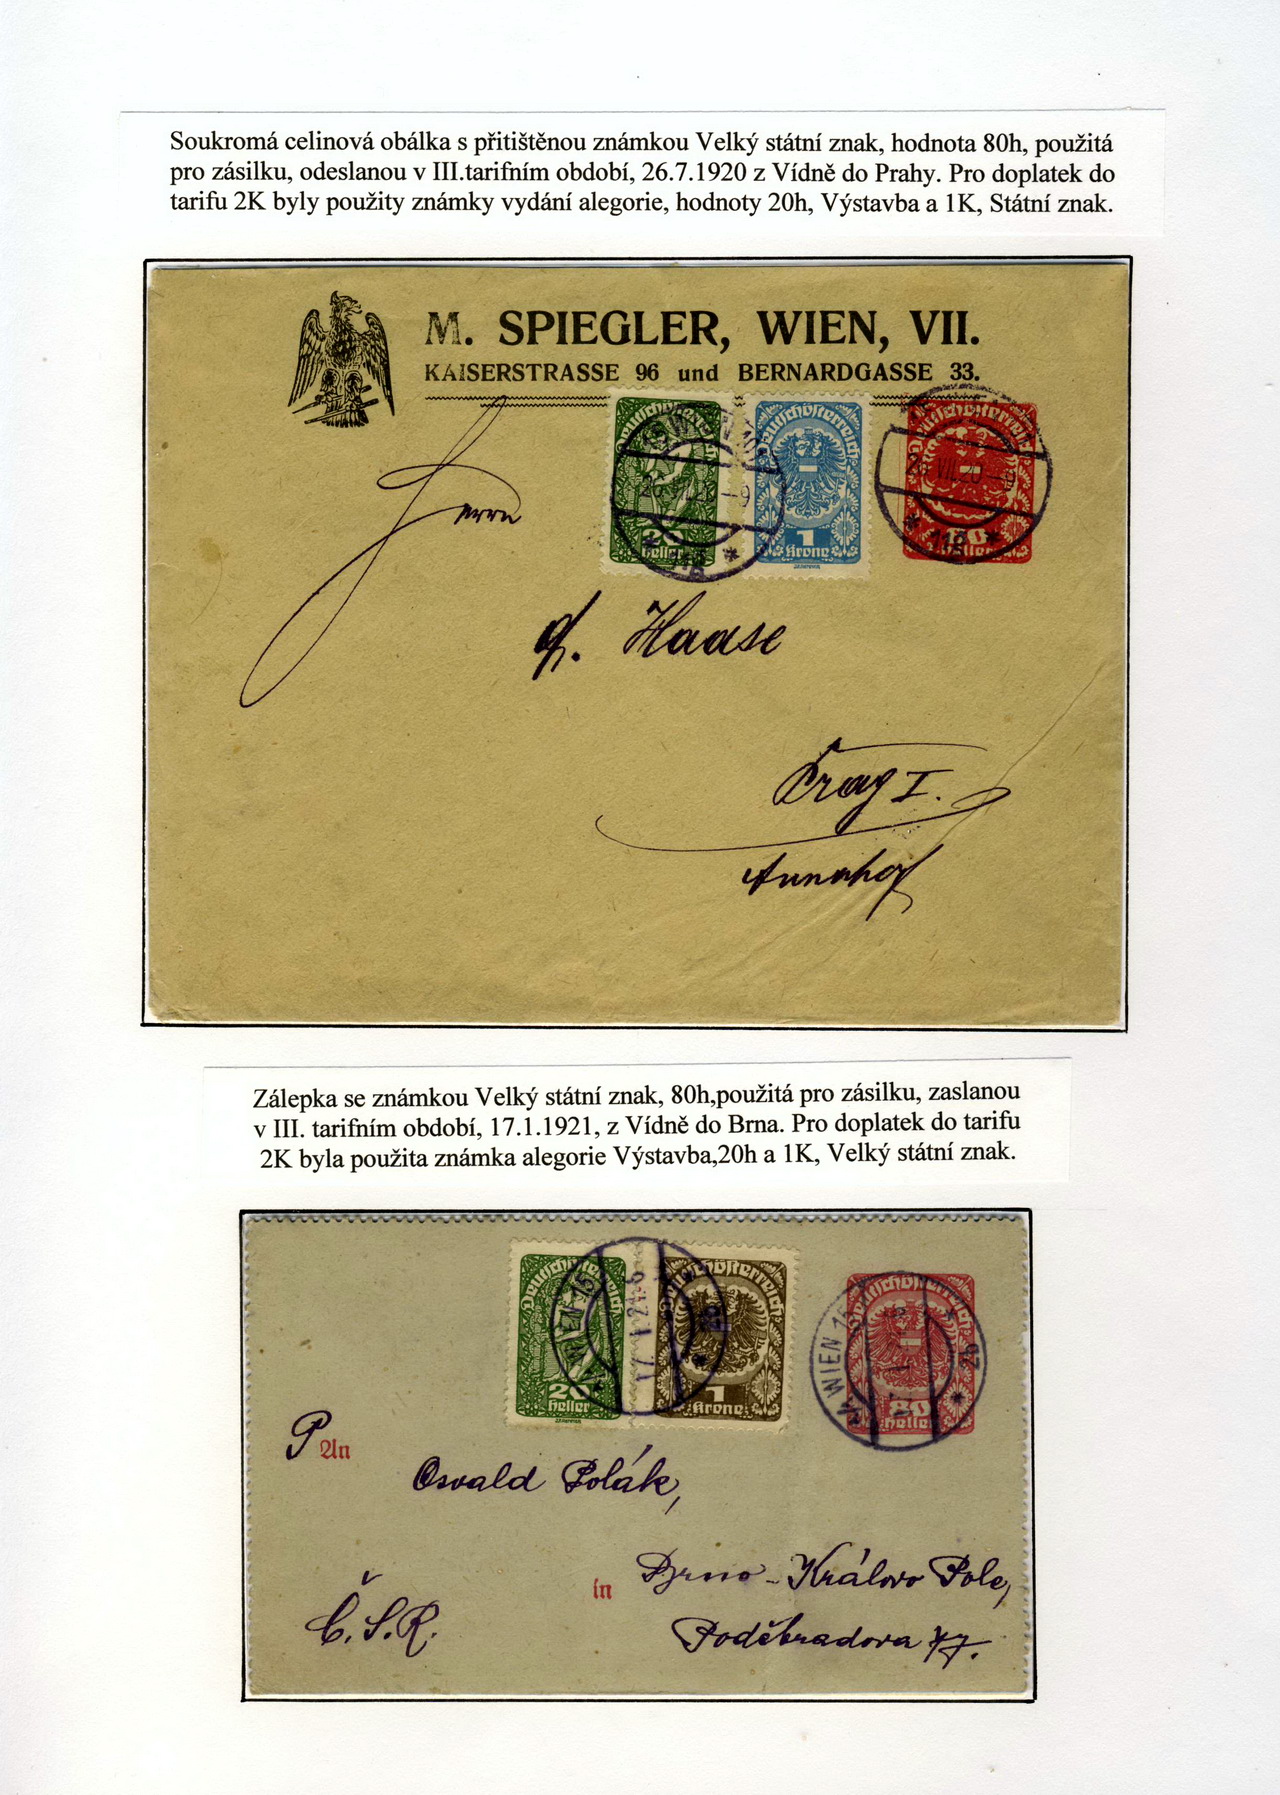 Soukromá celinová obálka s přitištěnou známkou Velký státní znak, hodnota 80h, použitá
pro zásilku, odeslanou v III.tarifním období, 26.7.1920 z Vídně do Prahy. Pro doplatek do
tarifu 2K byly použity známky vydání alegorie, hodnoty 20h, Výstavba a 1K, Státní znak.
M. SPIEGLER, WIEN, VII.
KAISERSTRASSE 96 und BERNARDGASSE 33.
Deutschösterreich
20
Heller
Deutschösterreich
1
Krone
Deutschösterreich
80
Heller
26.VII.20 –9
Herrn
Haase
Prag I.
Annahof
Zálepka se známkou Velký státní znak, 80h,použitá pro zásilku, zaslanou
v III. tarifním období, 17.1.1921, z Vídně do Brna. Pro doplatek do tarifu
2K byla použita známka alegorie Výstavba,20h a 1K, Velký státní znak.
Deutschösterreich
20
Heller
Deutschösterreich
1
Krone
Deutschösterreich
80
Heller
WIEN 15
17.1.21
WIEN 15
2b
P An
Osvald Polák,
in Brno - Královo Pole,
Č.S.R.
Poděbradova 47.